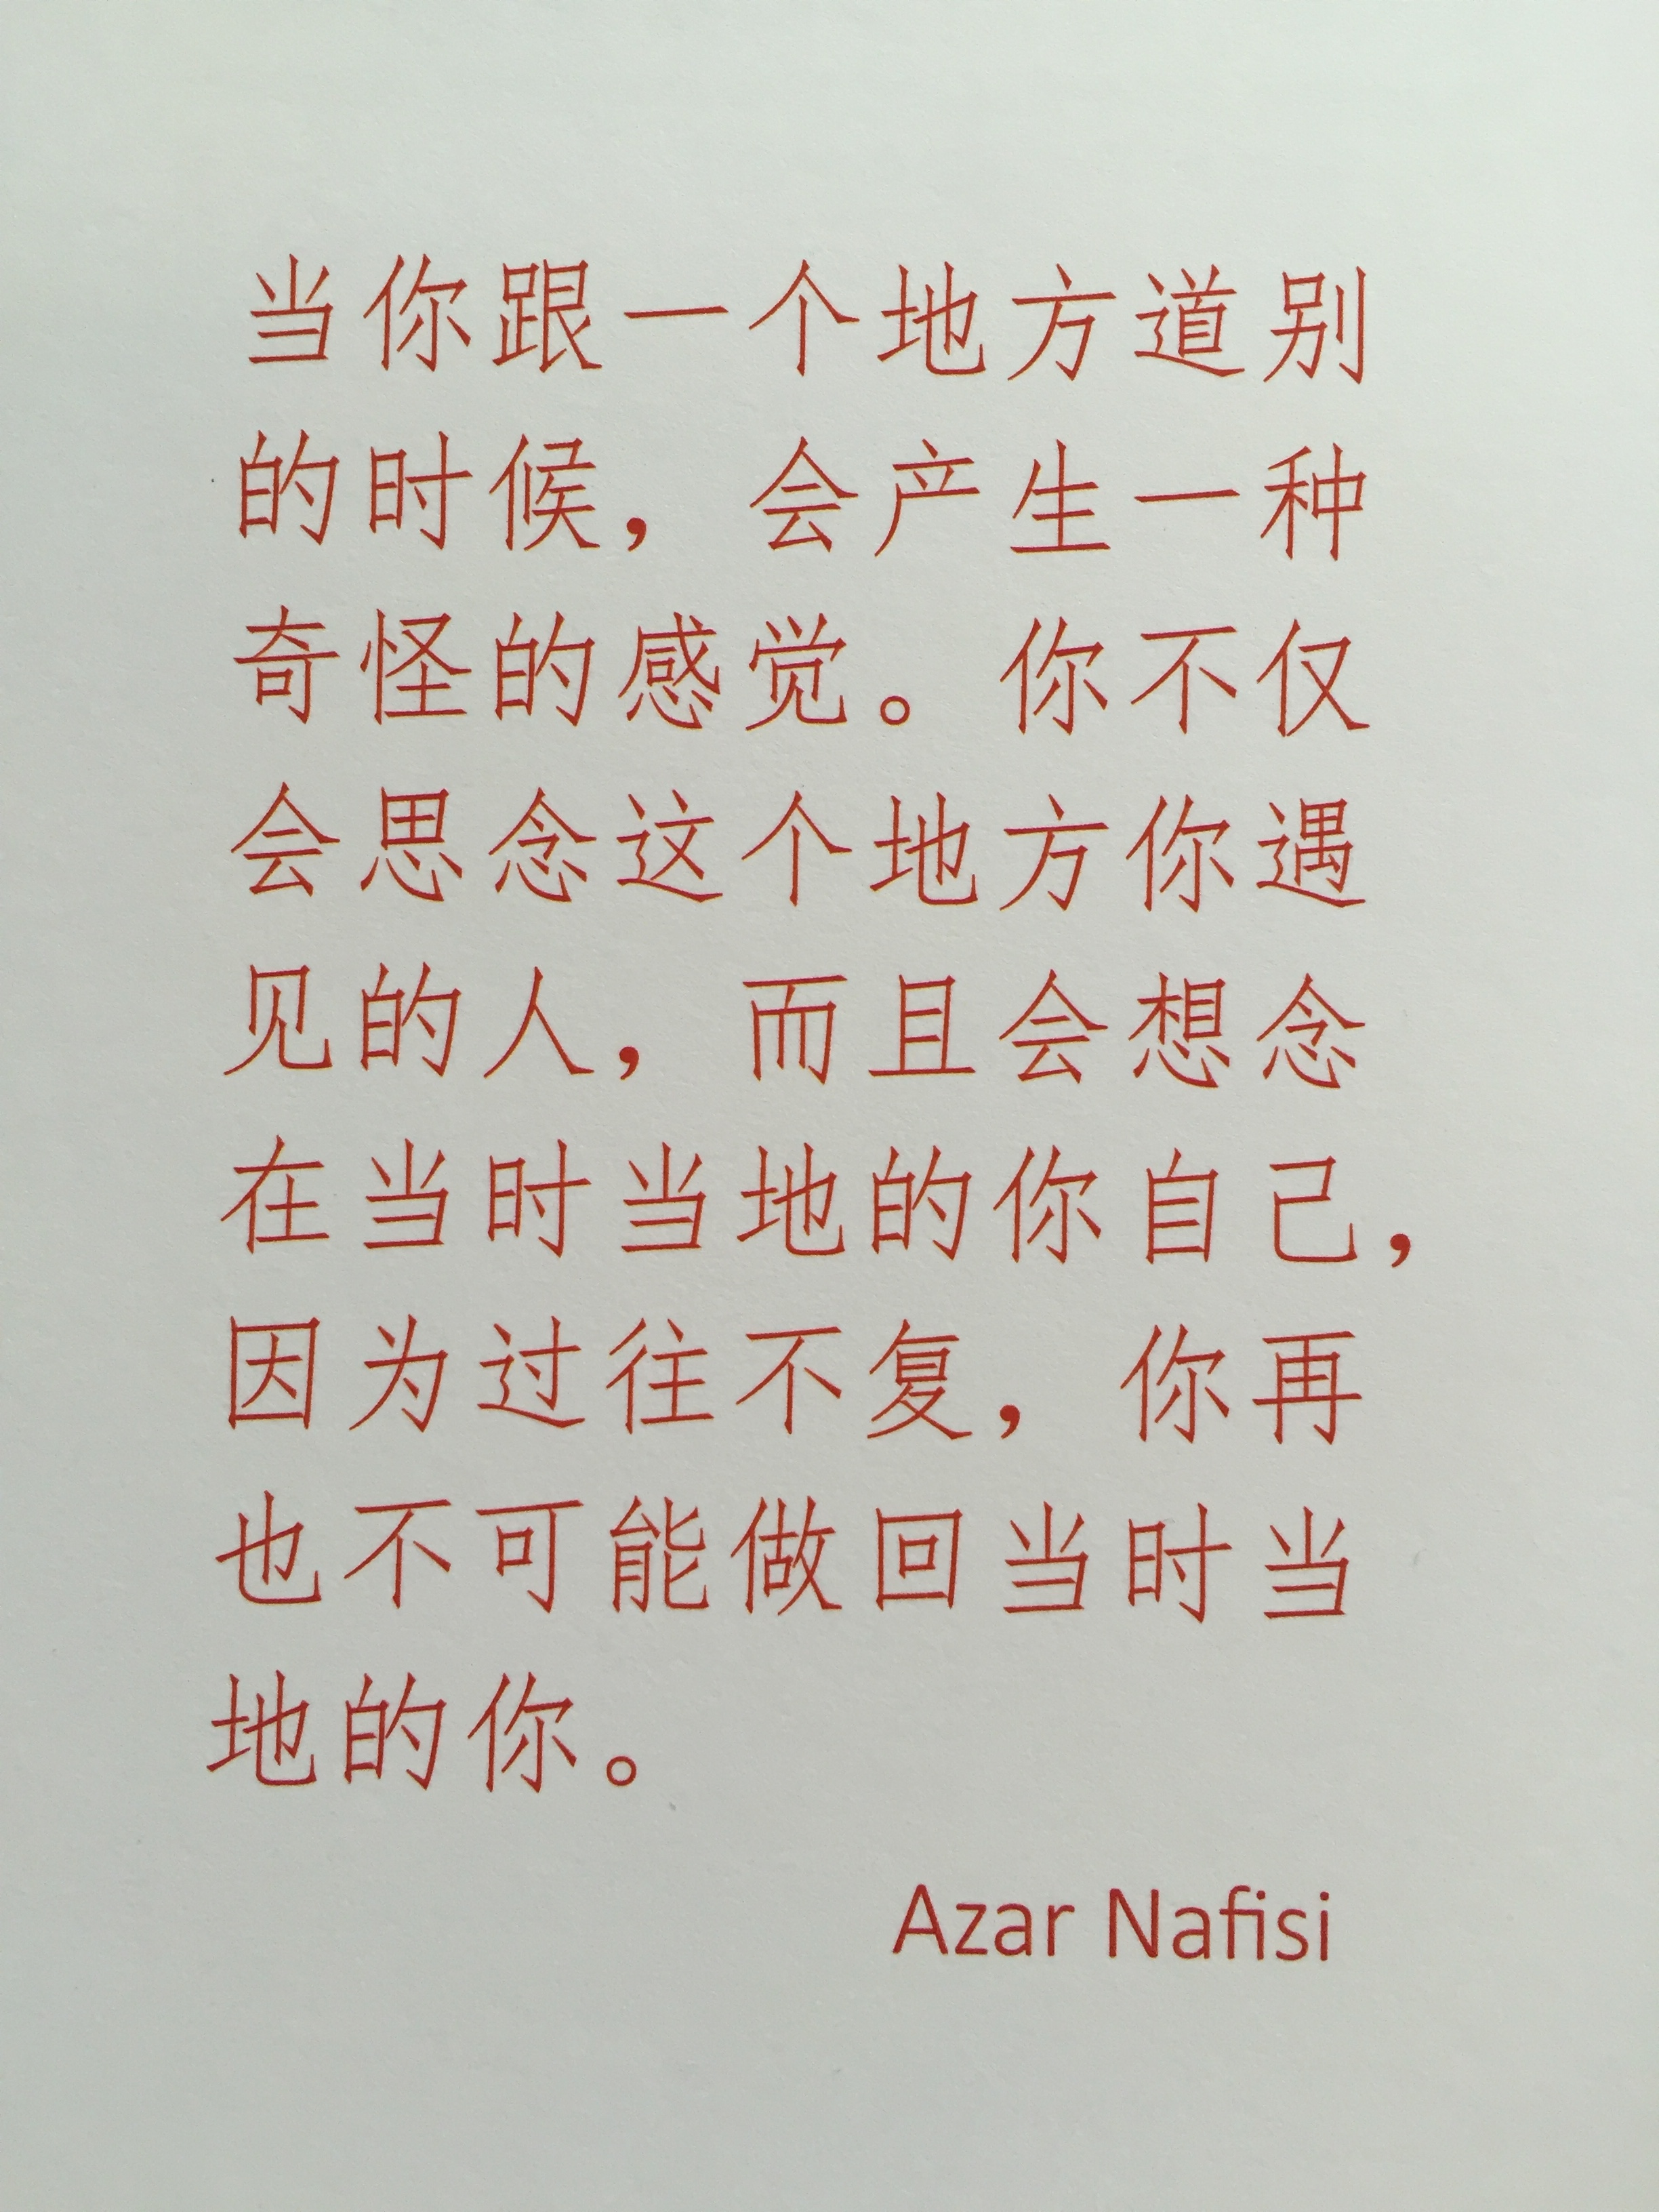 当你跟一个地方道别
的时候，会产生一种
奇怪的感觉。你不仅
会思念这个地方你遇
见的人，而且会想念
在当时当地的你自己，
因为过往不复，你再
也不可能做回当时当
地的你。
Azar Nafisi